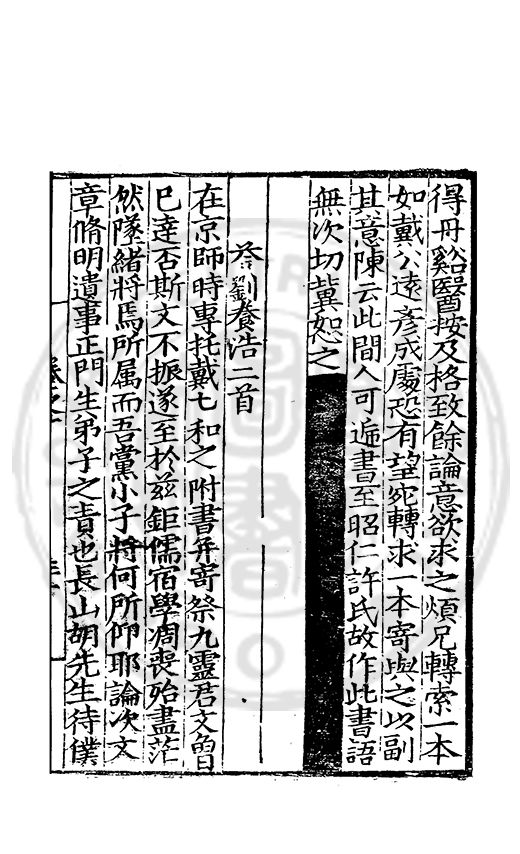 得丹谿醫按及格致餘論意欲求之煩兄轉索一本
如戴公遠彥成處恐有望宛轉求一本寄與之以副
其意陳云此間人可遞書至昭仁許氏故作此書語
無次切冀恕之
答劉養浩二首
在京師時專托戴七和之附書并寄祭九靈君文曾
已達否斯文不振遂至於兹鉅儒宿學凋喪殆盡茫
然墜緒將焉所属而吾黨小子將何所仰耶論次文
章脩明遺事正門生弟子之責也長山胡先生待僕